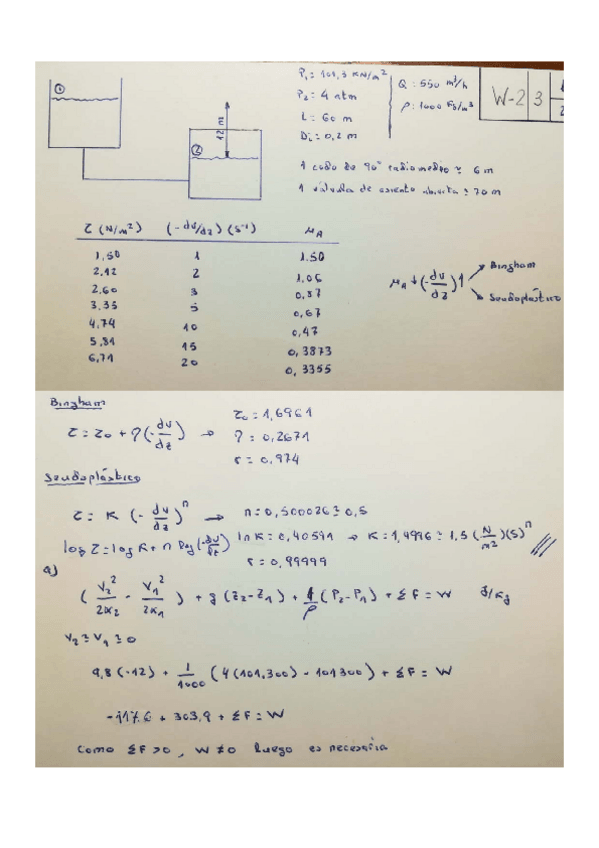 ①
②
12 m
P₁ = 101,3 KN/m²
P₂ = 4 atm
L = 60 m
Di = 0,2 m
Q : 550 m³/h
ρ : 1000 Kg/m³
W-2 3
1 codo de 90° radio medio ≃ 6 m
1 válvula de asiento abierta ≃ 70 m
τ (N/m²) (-dv/dz) (s⁻¹) μA
1,50 1 1.50
2.12 2 1.06
2.60 3 0,87
3.35 5 0,67
4,74 10 0,47
5,81 15 0,3873
6,71 20 0,3355
μA ↓ (-dv/dz) ↑
Bingham
Seudoplástico
Bingham
τ = τ₀ + η (-dv/dz) →
τ₀ = 1,6961
η = 0,2671
r = 0,974
Seudoplástico
τ = K (-dv/dz)ⁿ → n = 0,500026 ≃ 0,5
log τ = log K + n log (-dv/dz) ln K = 0,40591 → K = 1,4996 ≃ 1.5 (N/m²)(s)ⁿ
r = 0,99999
a)
(V₂²/2α₂ - V₁²/2α₁) + g (z₂-z₁) + 1/ρ (P₂-P₁) + ΣF = W J/Kg
V₂ ≃ V₁ ≃ 0
9,8 (-12) + 1/1000 (4(101.300) - 101300) + ΣF = W
-117.6 + 303,9 + ΣF = W
Como ΣF > 0, W ≠ 0 luego es necesaria